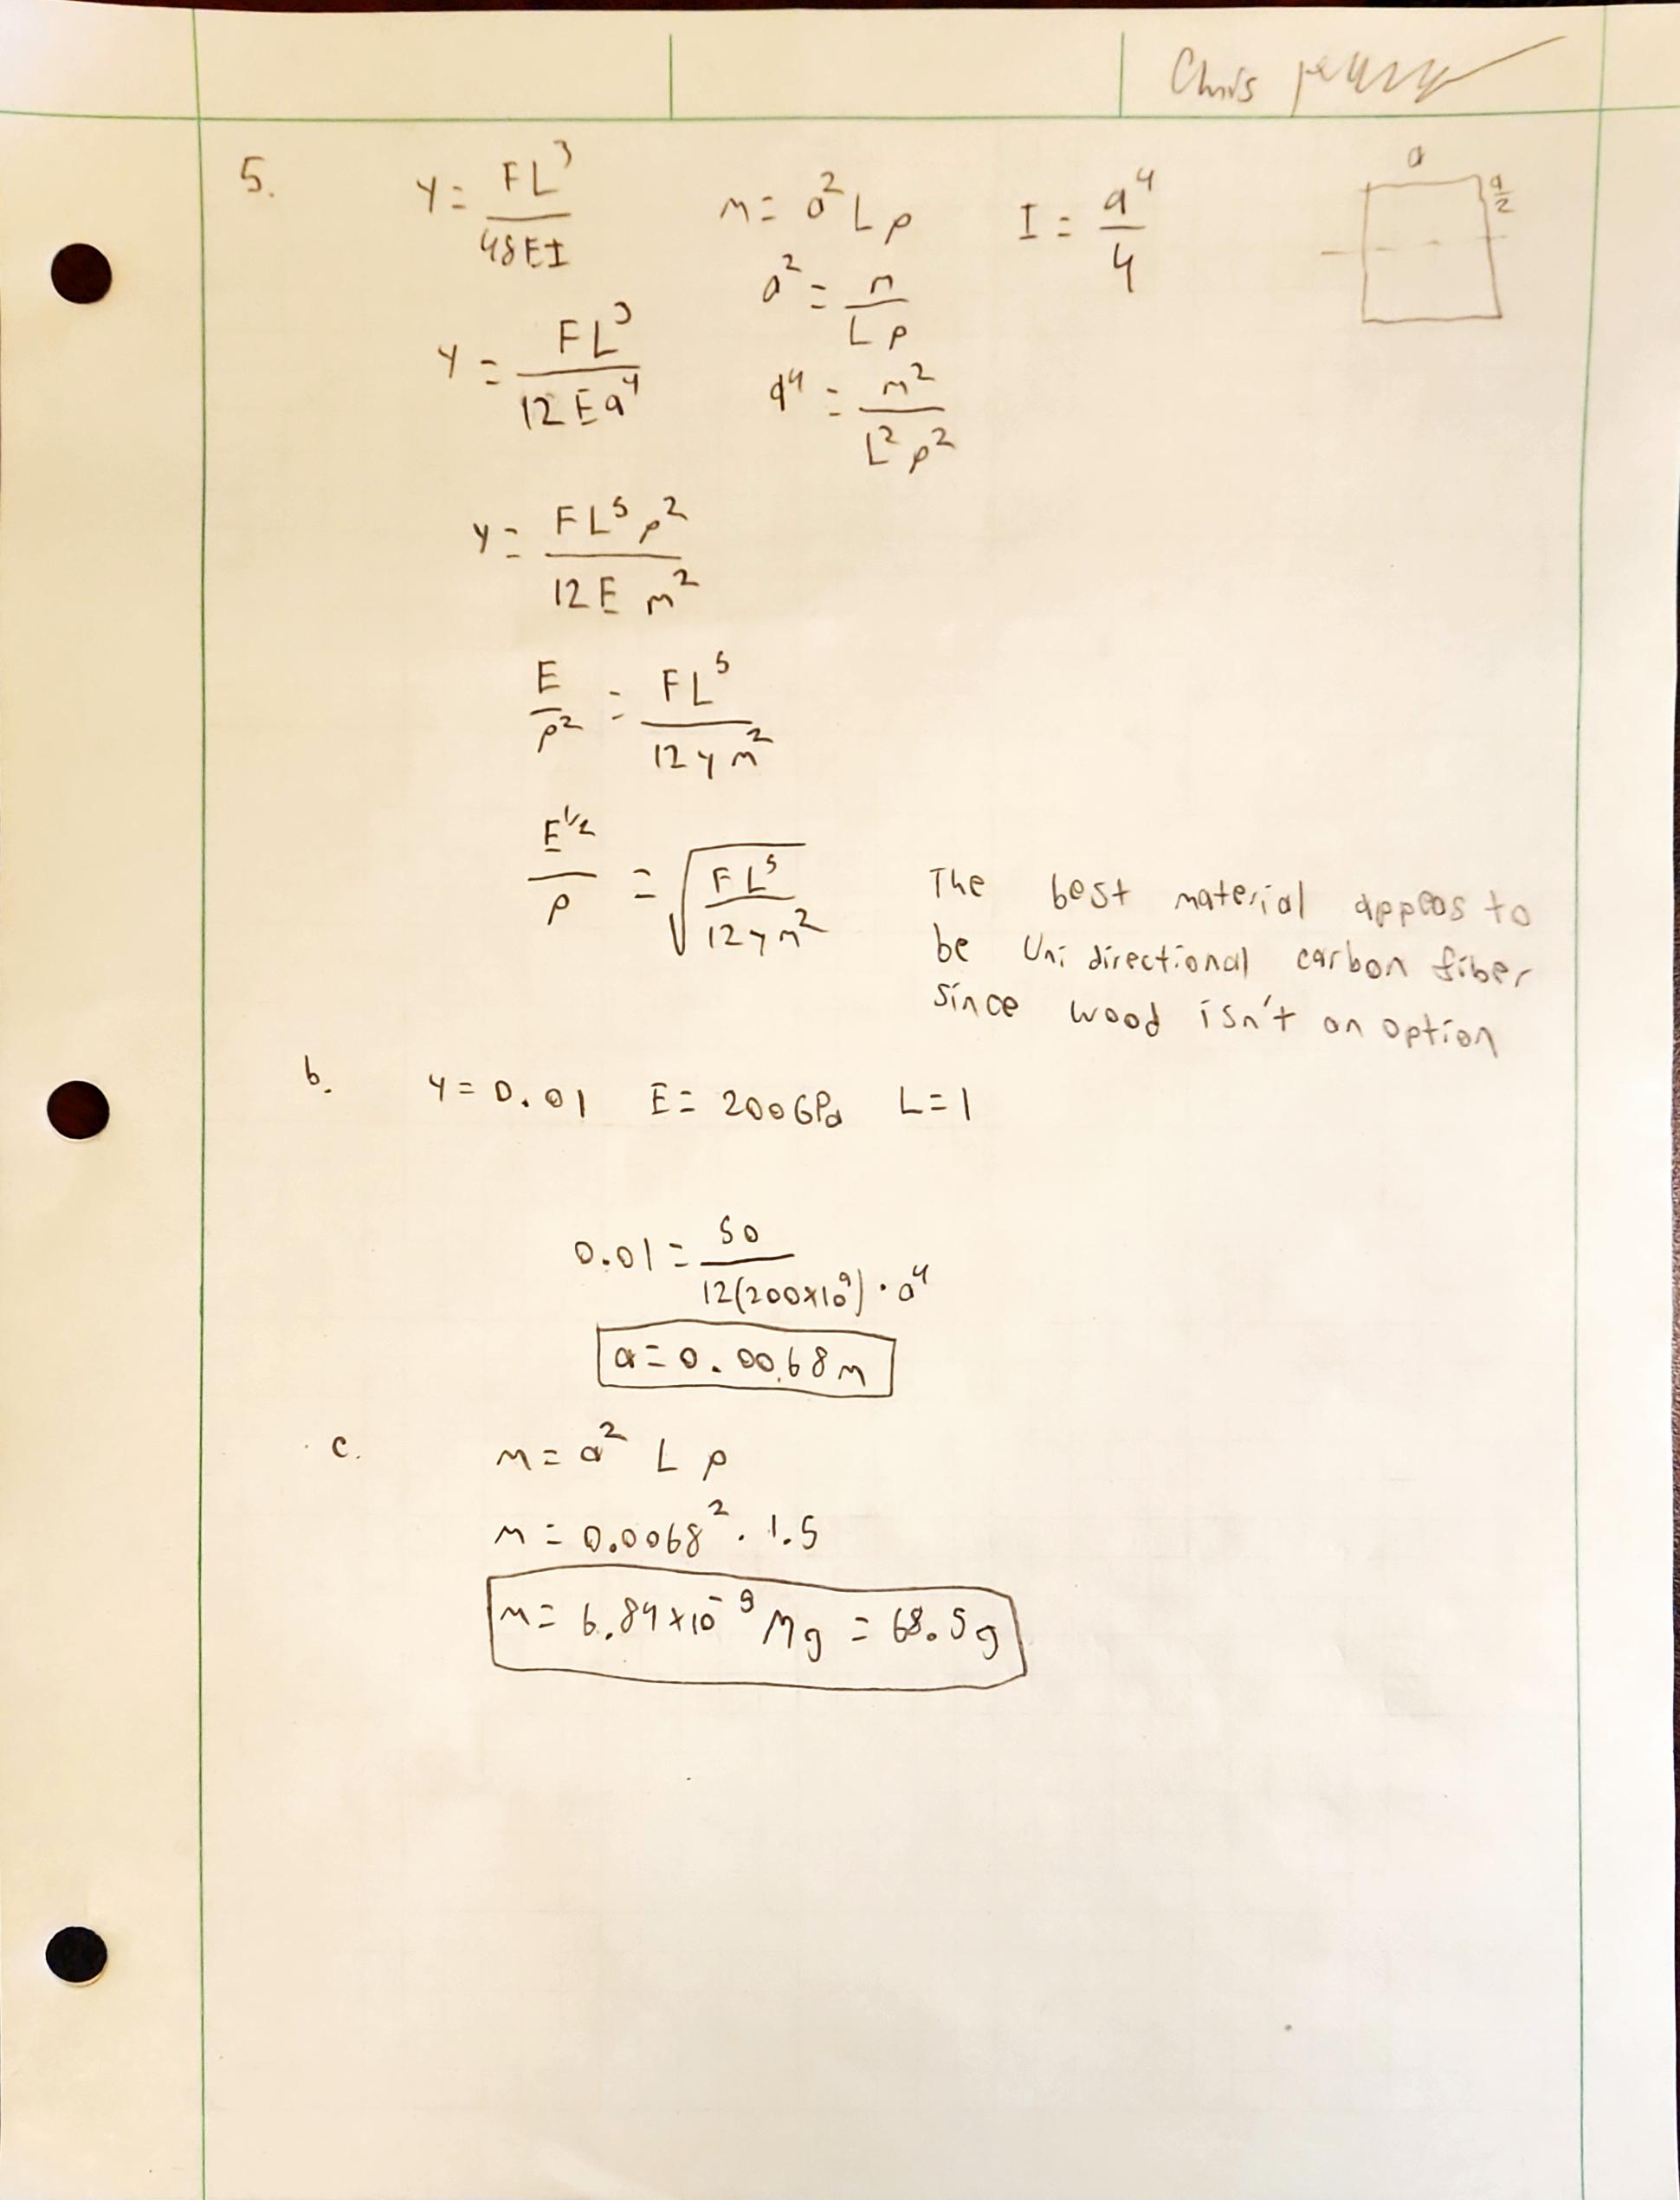 Chris
5. y = FL³/48EI m = a² L ρ I = a⁴/4 a a/2
a² = m/Lρ
y = FL³/12Ea⁴ a⁴ = m²/L²ρ²
y = FL⁵ρ²/12E m²
E/ρ² = FL⁵/12ym²
E^1/2/ρ = √(FL⁵/12ym²)
The best material appeas to
be Uni directional carbon fiber
since wood isn't an option
b. y = 0.01 E = 200GPa L = 1
0.01 = 50/12(200×10⁹) · a⁴
a = 0.0068m
c. m = a² L ρ
m = 0.0068² · 1.5
m = 6.84×10⁻⁹ Mg = 68.5g